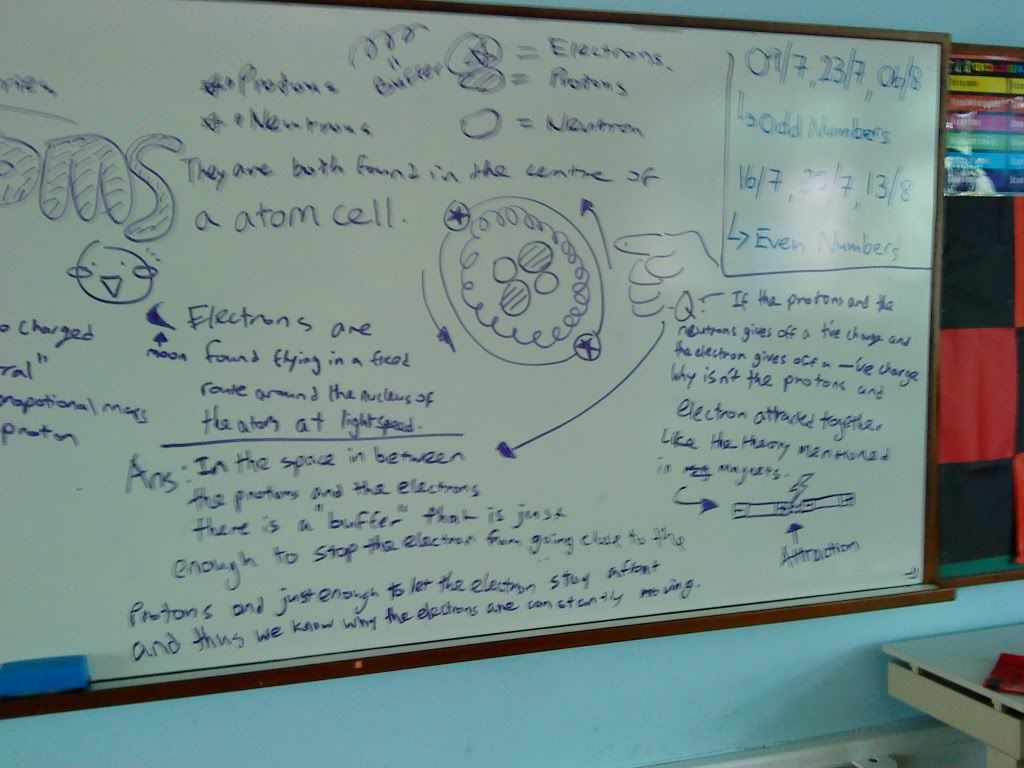 Protons
Neutrons
Buffer
= Electrons.
= Protons
= Neutron
They are both found in the centre of
a atom cell.
oms
o charged
ral"
proton
moon
Electrons are
found flying in a fixed
route around the nucleus of
the atom at lightspeed.
09/7, 23/7, 06/8
Odd Numbers
16/7, 7, 13/8
Even Numbers
Q: If the protons and the
neutrons gives off a +ive charge and
the electron gives off a -'ve charge
Why isn't the protons and
electron attracted together
Like the theory mentioned
in magnets.
Attraction
Ans: In the space in between
the protons and the electrons
there is a "buffer" that is just
enough to stop the electron from going close to the
Protons and just enough to let the electron stay
and thus we know why the electrons are constantly moving.